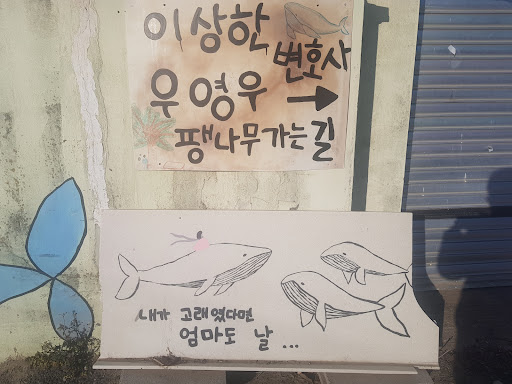 이상한
변호사
우영우 →
팽나무가는길
내가 고래였다면
엄마도 날 ...